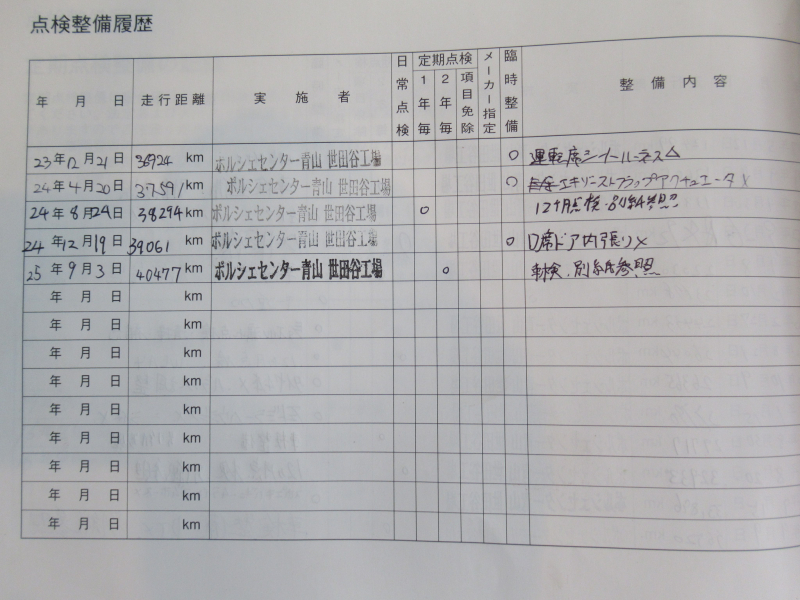 点検整備履歴
年 月 日 走行距離 実施者 日常点検 定期点検 1年毎 2年毎 項目免除 メーカー指定 臨時整備 整備内容
23年12月21日 km ポルシェセンター青山 世田谷工場 ○ 運転席シートハーネス△
24年4月20日 37591km ポルシェセンター青山 世田谷工場 ○ エキゾーストフラップアクチュエータ×
24年8月24日 38294km ポルシェセンター青山 世田谷工場 ○ 12ヶ月点検 別紙参照
24年12月19日 39061km ポルシェセンター青山 世田谷工場 ○ D席ドア内張り×
25年9月3日 40477km ポルシェセンター青山 世田谷工場 ○ 車検、別紙参照
年 月 日 km
年 月 日 km
年 月 日 km
年 月 日 km
年 月 日 km
年 月 日 km
年 月 日 km
年 月 日 km
年 月 日 km